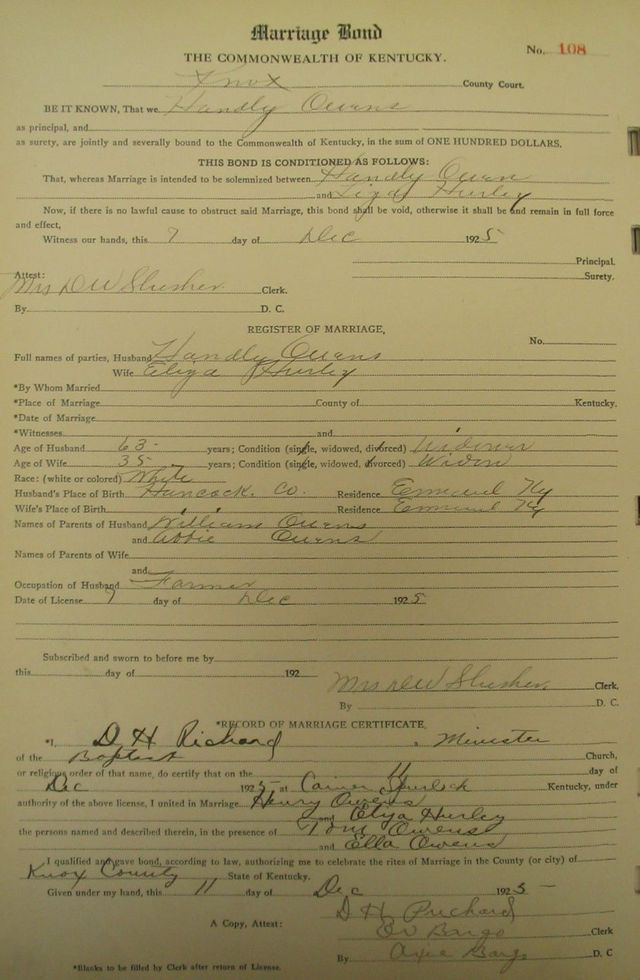 Marriage Bond
No. 108
THE COMMONWEALTH OF KENTUCKY.
Knox County Court.
BE IT KNOWN, That we Handly Owens
as principal, and
as surety, are jointly and severally bound to the Commonwealth of Kentucky, in the sum of ONE HUNDRED DOLLARS.
THIS BOND IS CONDITIONED AS FOLLOWS:
That, whereas Marriage is intended to be solemnized between Handly Owen
and Liza Hurley
Now, if there is no lawful cause to obstruct said Marriage, this bond shall be void, otherwise it shall be and remain in full force
and effect,
Witness our hands, this 7 day of Dec 1925
Principal.
Attest: Surety.
Mrs DW Slusher Clerk.
By D. C.
REGISTER OF MARRIAGE,
No.
Full names of parties, Husband Handly Owens
Wife Eliza Hurley
*By Whom Married
*Place of Marriage County of Kentucky.
*Date of Marriage
*Witnesses and
Age of Husband 63 years; Condition (single, widowed, divorced) Widower
Age of Wife 35 years; Condition (single, widowed, divorced) Widow
Race: (white or colored) White
Husband's Place of Birth Hancock. Co. Residence Ky
Wife's Place of Birth " " Residence Ky
Names of Parents of Husband William Owens
and Abbie Owens
Names of Parents of Wife
and
Occupation of Husband Farmer
Date of License 7 day of Dec 1925
Subscribed and sworn to before me by
this day of 192
Mrs DW Slusher. Clerk,
By D. C.
*RECORD OF MARRIAGE CERTIFICATE.
*I, D H Richard, Minister
of the Baptist Church,
or religious order of that name, do certify that on the 11 day of
Dec 1925 at Kentucky, under
authority of the above license, I united in Marriage Henry Owens
and Eliza Hurley
the persons named and described therein, in the presence of Tom Owens
and Ella Owens
I qualified and gave bond, according to law, authorizing me to celebrate the rites of Marriage in the County (or city) of
Knox County State of Kentucky.
Given under my hand, this 11 day of Dec 1925
D H Prichard
A Copy, Attest: Bargo Clerk
By Bargo D. C
*Blanks to be filled by Clerk after return of License.